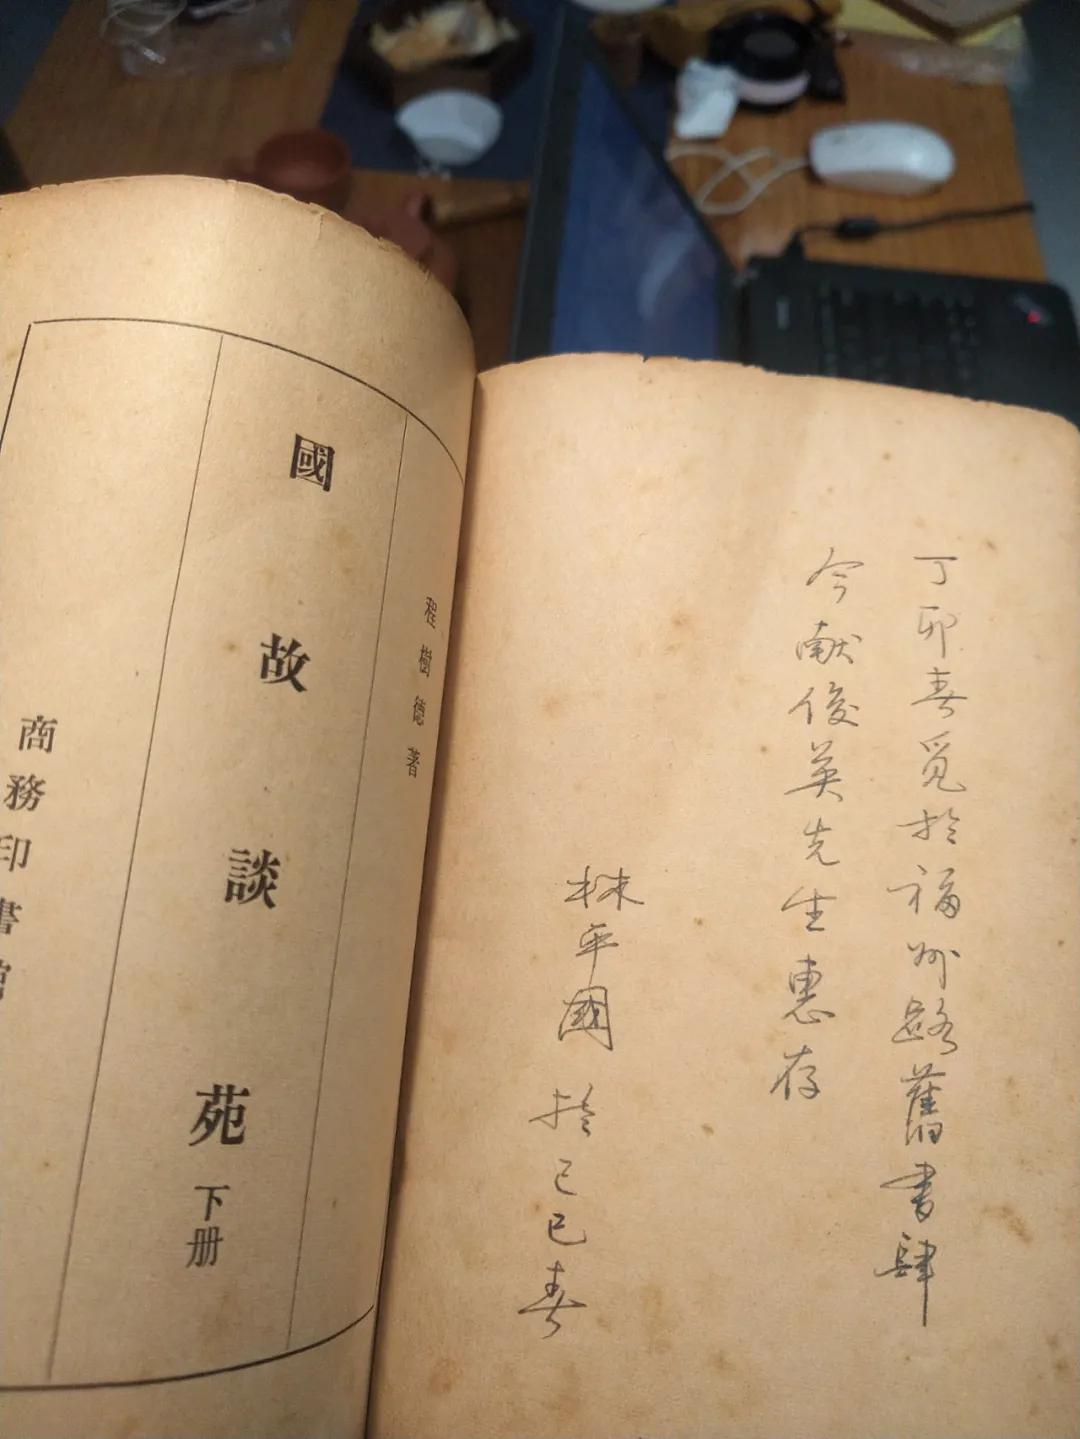 丁卯春覓於福州路舊書肆
今献俊英先生惠存
林平國
於己巳春
程樹德著
國故談苑下册
商務印書館